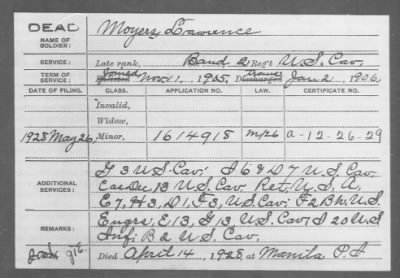 DEAD
NAME OF SOLDIER:
Moyers, Lawrence
SERVICE:
Late rank, Band 2 Reg't U.S. Cav.
TERM OF SERVICE:
Joined Nov. 1, 1905, Trans Jan 2, 1906.
DATE OF FILING. CLASS. APPLICATION NO. LAW. CERTIFICATE NO.
Invalid,
Widow,
1928 May 26, Minor, 1614918 m/26 a-12-26-29
ADDITIONAL SERVICES:
G 3 U.S. Cav; I 6 & D 7 U.S. Cav
13 U.S. Cav. Ret. U.S.A.
E 7, H 3, D 1, F 3, U.S. Cav; F 2 Bn. U.S.
REMARKS:
Engrs, E 13, G 13 U.S. Cav; I 20 U.S
Inf; B 2 U.S. Cav.
Died April 14, 1925, at Manila P.I